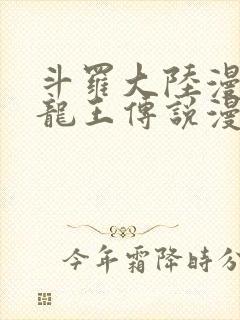 斗羅大陸漫
龍王傳說漫
今年霜降時分